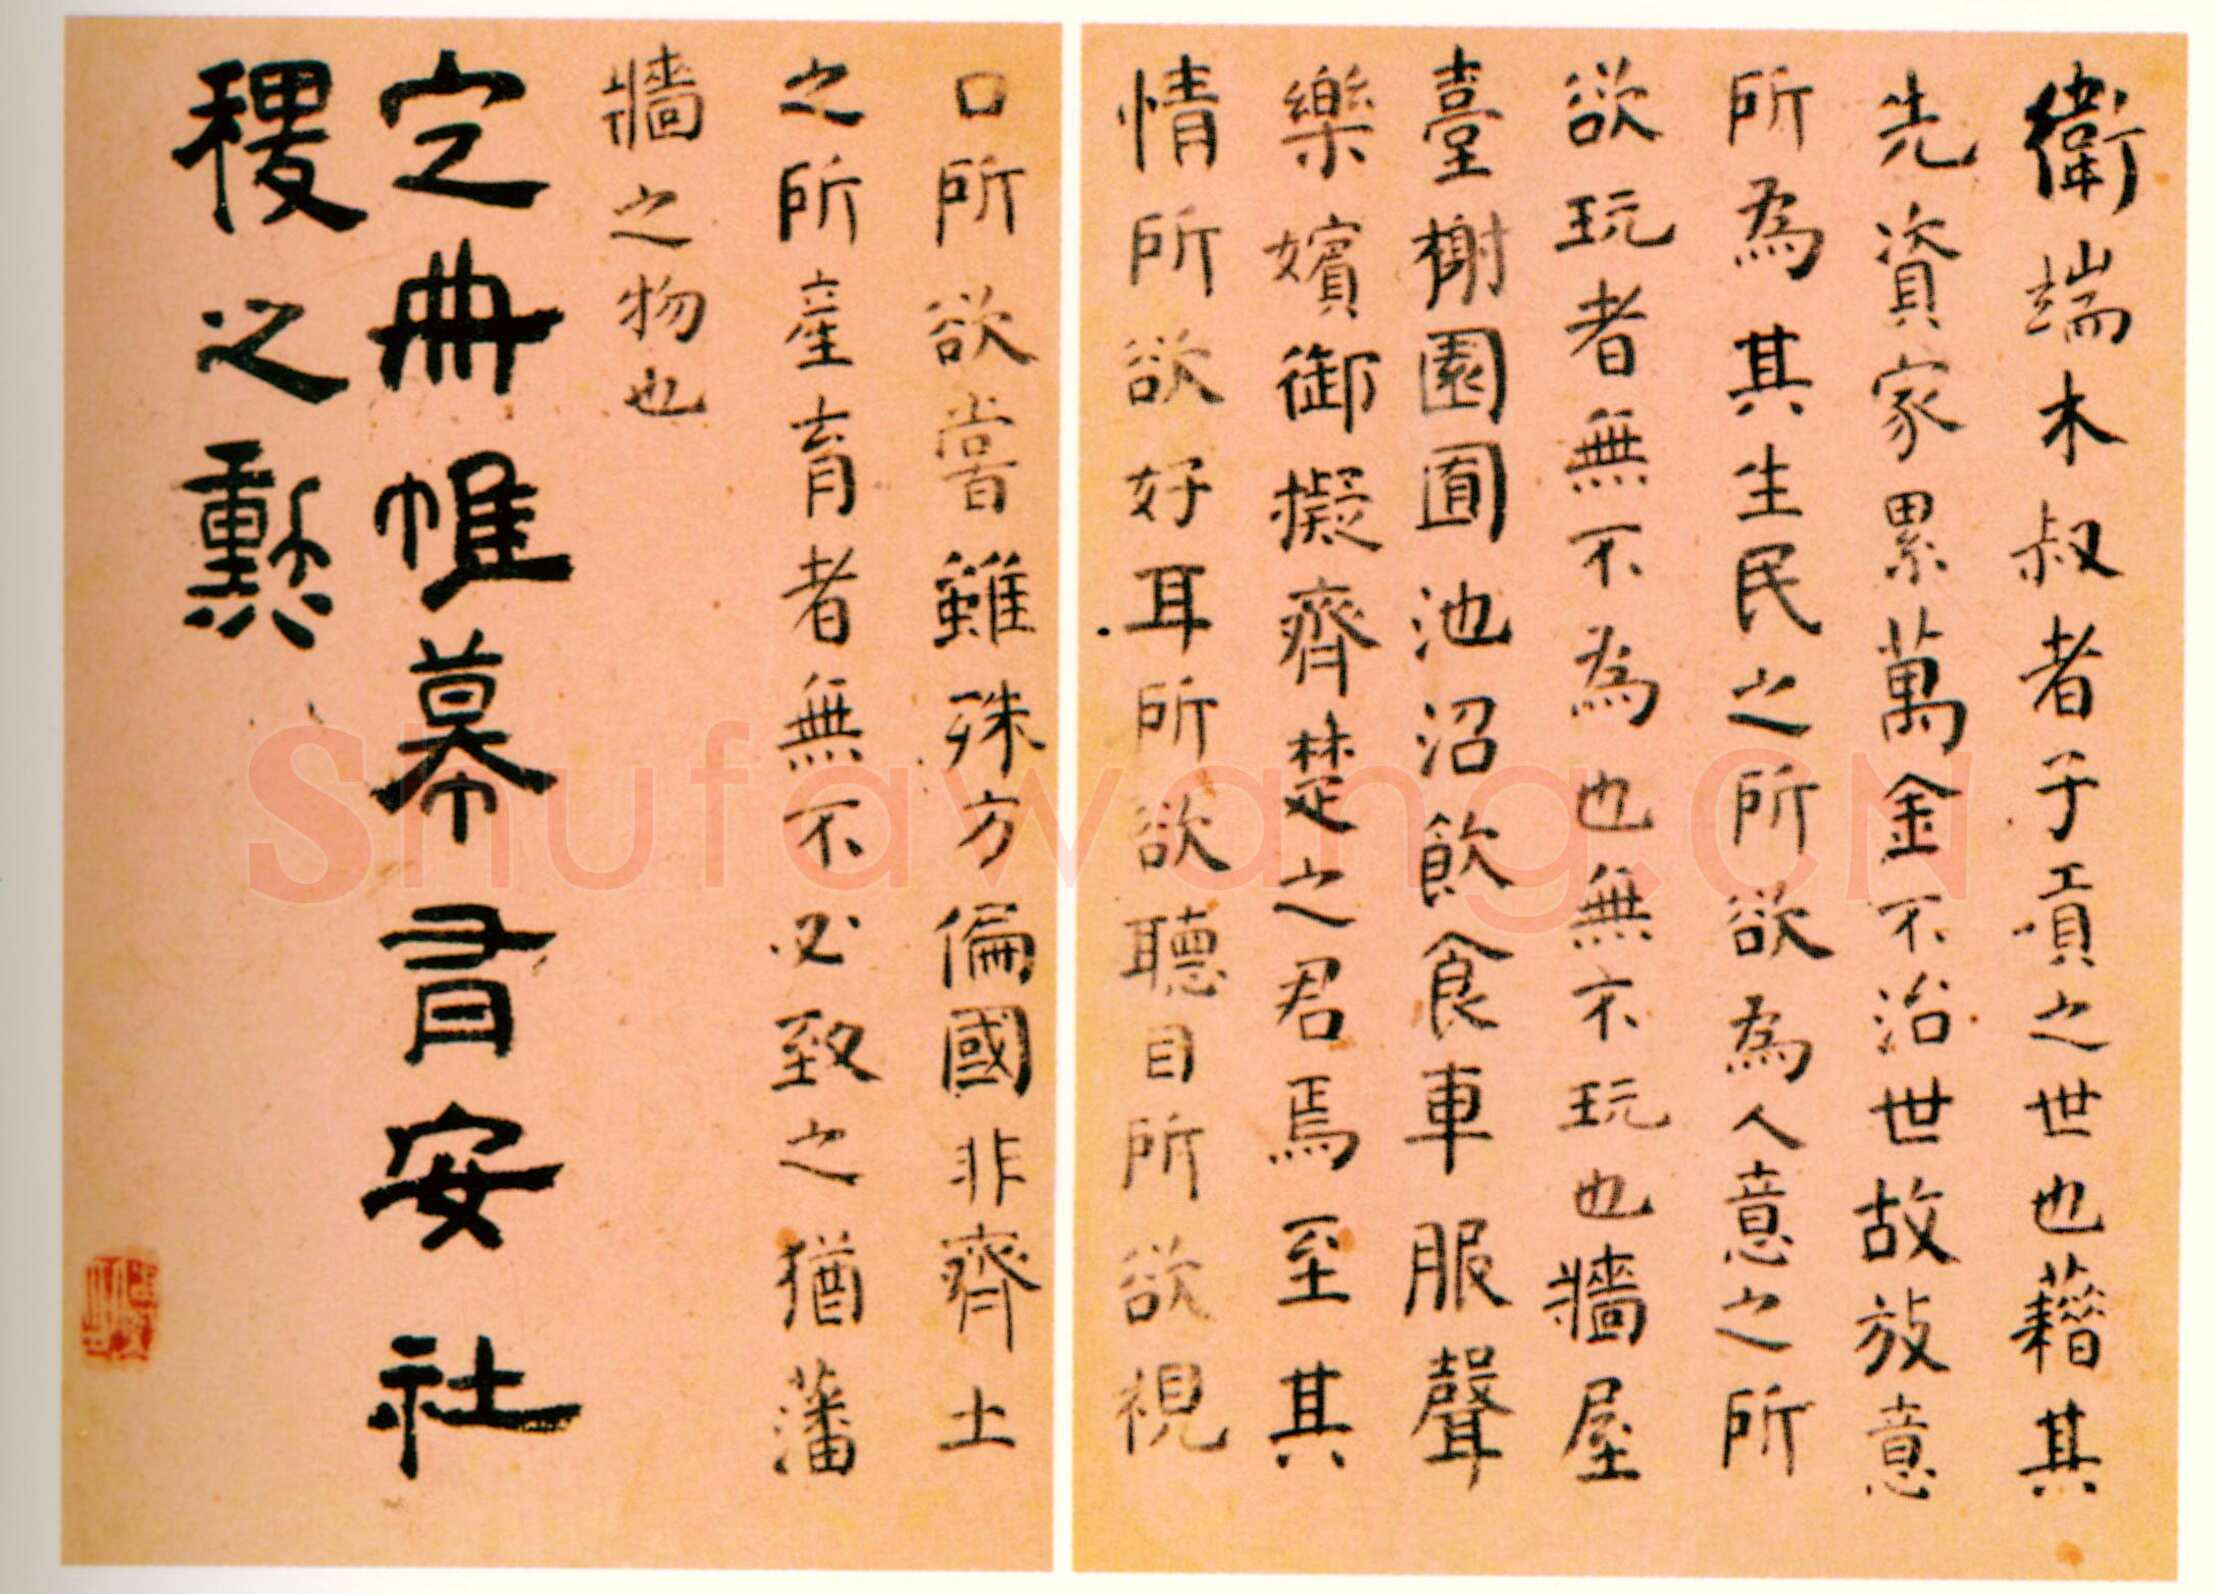 衛端木叔者子貢之世也藉其
先資家累萬金不治世故放意
所為其生民之所欲為人意之所
欲玩者無不為也無不玩也牆屋
臺榭園囿池沼飲食車服聲
樂嬪御擬齊楚之君焉至其
情所欲好耳所欲聽目所欲視
口所欲嘗雖殊方偏國非齊土
之所產育者無不必致之猶藩
牆之物也
定冊帷幕有安社
稷之勲
Shufawang.CN